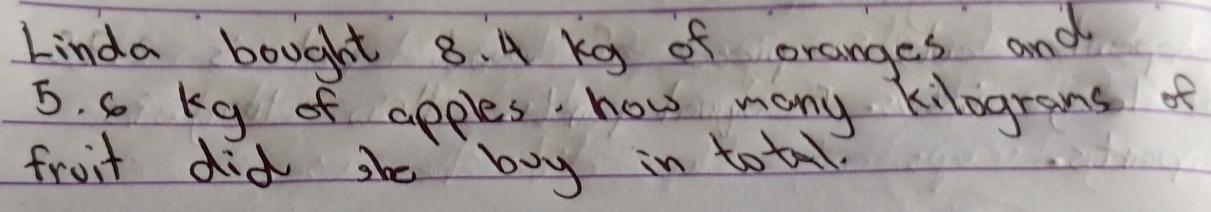 Linda bought 8.4 kg of oranges and
5.6 kg of apples. how many kilograms of
fruit did she buy in total.